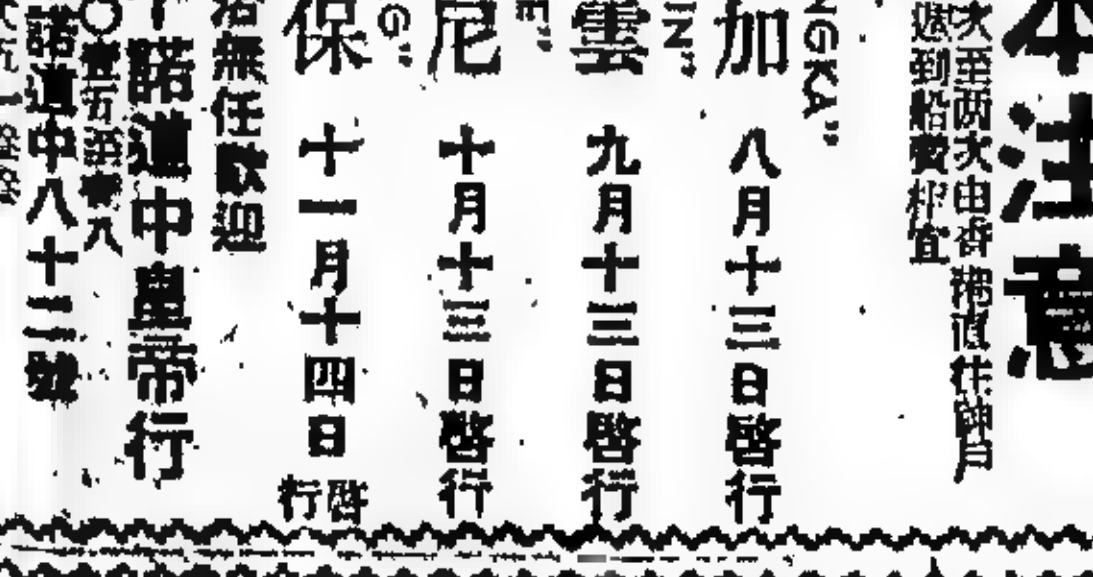 本注意
次至两次由香港直往神戶
到船費
NGKA"
加 八月十三日啓行
IN"
雲 九月十三日啓行
E"
尼 十月十三日啓行
G"
保 十一月十四日啓行
無任歡迎
諾道中皇帝行
諾道中八十二號